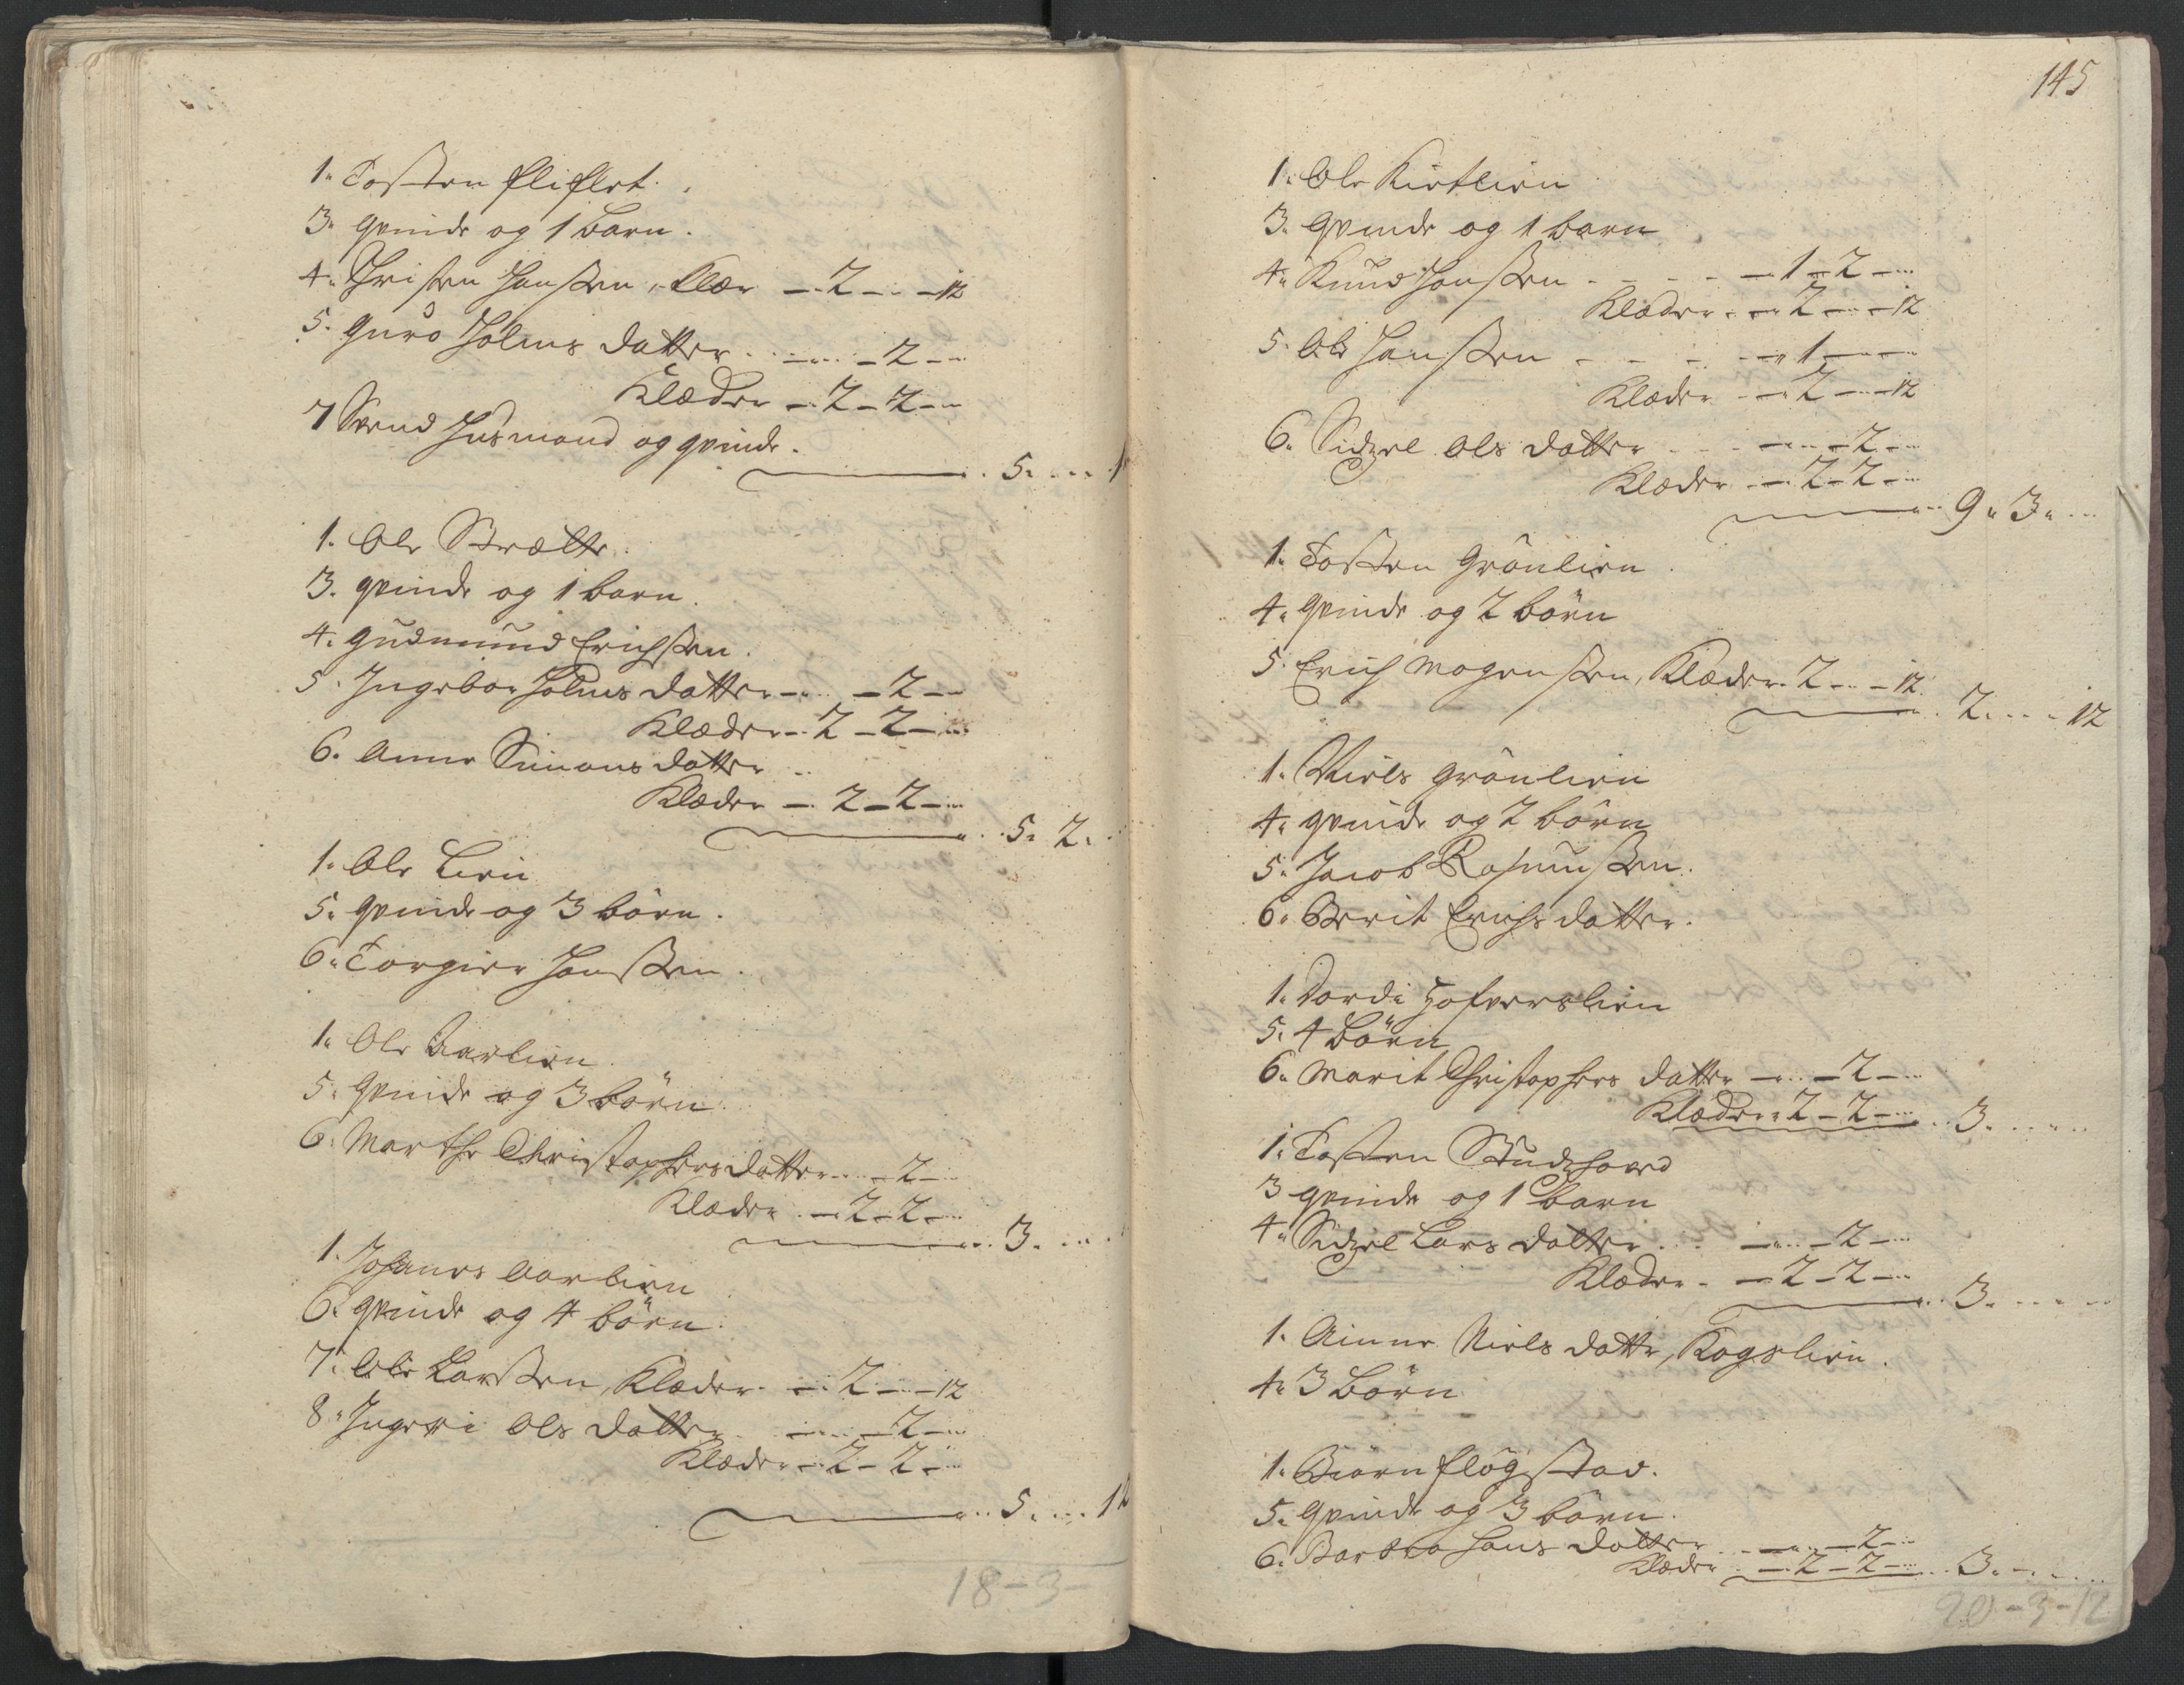 1. Tosten Fliflet.
3. qvinde og 1 barn.
4. Christen Hansen, Klær — 2 — — 12
5. Guro Holms datter — — 2 —
Klæder — 2 — 2 —
7 Svend Husmand og qvinde.
5. — — 1
1. Ole Bratte.
3. qvinde og 1 barn.
4. Gudmund Erichsen.
5. Ingebor Holms datter — — 2 —
Klæder — 2 — 2 —
6. Anne Simons datter
Klæder — 2 — 2 —
5. 2.
1. Ole Lien
5. qvinde og 3 börn.
6. Torgier Hansen.
1. Ole Aarlien
5. qvinde og 3 börn.
6. Marthe Christophers datter — 2 —
Klæder — 2 — 2 —
3. — —
1. Johanes Aarlien
6. qvinde og 4 börn.
7. Ole Larsen, Klæder — 2 — — 12
8. Ingeri Ols datter — — 2 —
Klæder — 2 — 2 —
5. — 12
18 - 3 -
145
1. Ole Kirtlien
3. qvinde og 1 barn
4. Knud Hansen — 1 — 2 —
Klæder — 2 — — 12
5. Ole Hansen — 1 — —
Klæder — 2 — — 12
6. Sidzel Ols datter — — 2 —
Klæder — 2 — 2 —
9. 3. —
1. Tosten Grönlien
4. qvinde og 2 börn
5. Erich Mogensen, Klæder 2 — — 12
2. — — 12
1. Niels Grönlien
4. qvinde og 2 börn
5. Jacob Rasmusen.
6. Berit Erichs datter.
1. Dordi Hofverslien
5. 4 Börn
6. Marit Christophers datter — — 2 —
Klæder 2 — 2 — 3. — —
1. Tosten Studshoved
3 qvinde og 1 barn
4. Sidzel Lars datter — — 2 —
Klæder — 2 — 2 —
3. — —
1. Anne Niels datter, Kogslien.
4. 3 Börn
1. Biörn Flögstad.
5. qvinde og 3 börn.
6. Barbra Hans datter — — 2 —
Klæder — 2 — 2 — 3. — —
20 - 3 - 12